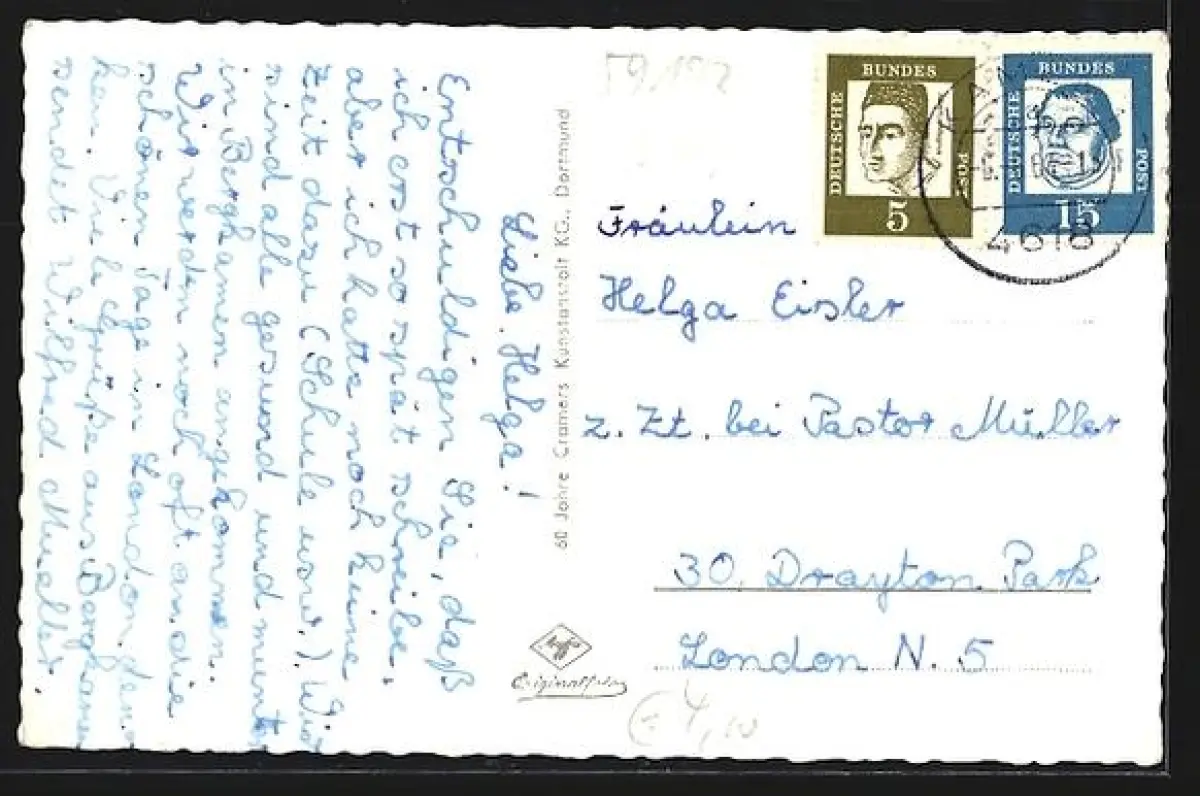 Liebe Helga!
Entschuldigen Sie, daß
ich erst so spät schreibe,
aber ich hatte noch keine
Zeit dazu (Schule usw.). Wir
sind alle gesund und munter
in Bergkamen angekommen.
Wir werden noch oft an die
schönen Tage in London den
ken. Viele Grüße aus Bergkamen
sendet Wilfred Mueller.
60 Jahre Cramers Kunstanstalt KG., Dortmund
59/192
DEUTSCHE BUNDES POST
5
DEUTSCHE BUNDES POST
15
4618
Fräulein
Helga Eisler
z. Zt. bei Pastor Müller
30, Drayton Park
London N. 5
Agfa
Originalfoto